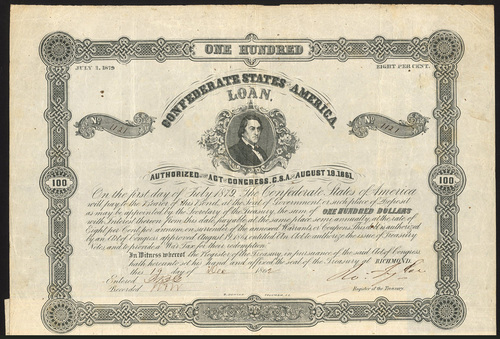 ONE HUNDRED
JULY 1, 1879
EIGHT PER CENT.
CONFEDERATE STATES AMERICA.
LOAN.
No 1131
No 1131
AUTHORIZED ACT CONGRESS, C.S.A. AUGUST 19. 1861.
100
100
On the first day of July 1879 The Confederate States of America
will pay to the Bearer of this Bond, at the seat of Government or such place of Deposit
as may be appointed by the Secretary of the Treasury, the sum of ONE HUNDRED DOLLARS
with Interest thereon from this date, payable at the same place, semi annually, at the rate of
Eight per Cent per annum on surrender of the annexed Warrants or Coupons. This is authorized
by an Act of Congress approved August 19. 1861, entitled An Act to authorize the issue of Treasury
Notes, and to provide a War Tax for their redemption.
In Witness whereof, the Register of the Treasury, in pursuance of the said Act of Congress
hath hereunto set his hand, and affixed the seal of the Treasury at RICHMOND.
this 19 day of Dec 1862
Entered
Recorded
Ro. Tyler
Register of the Treasury.